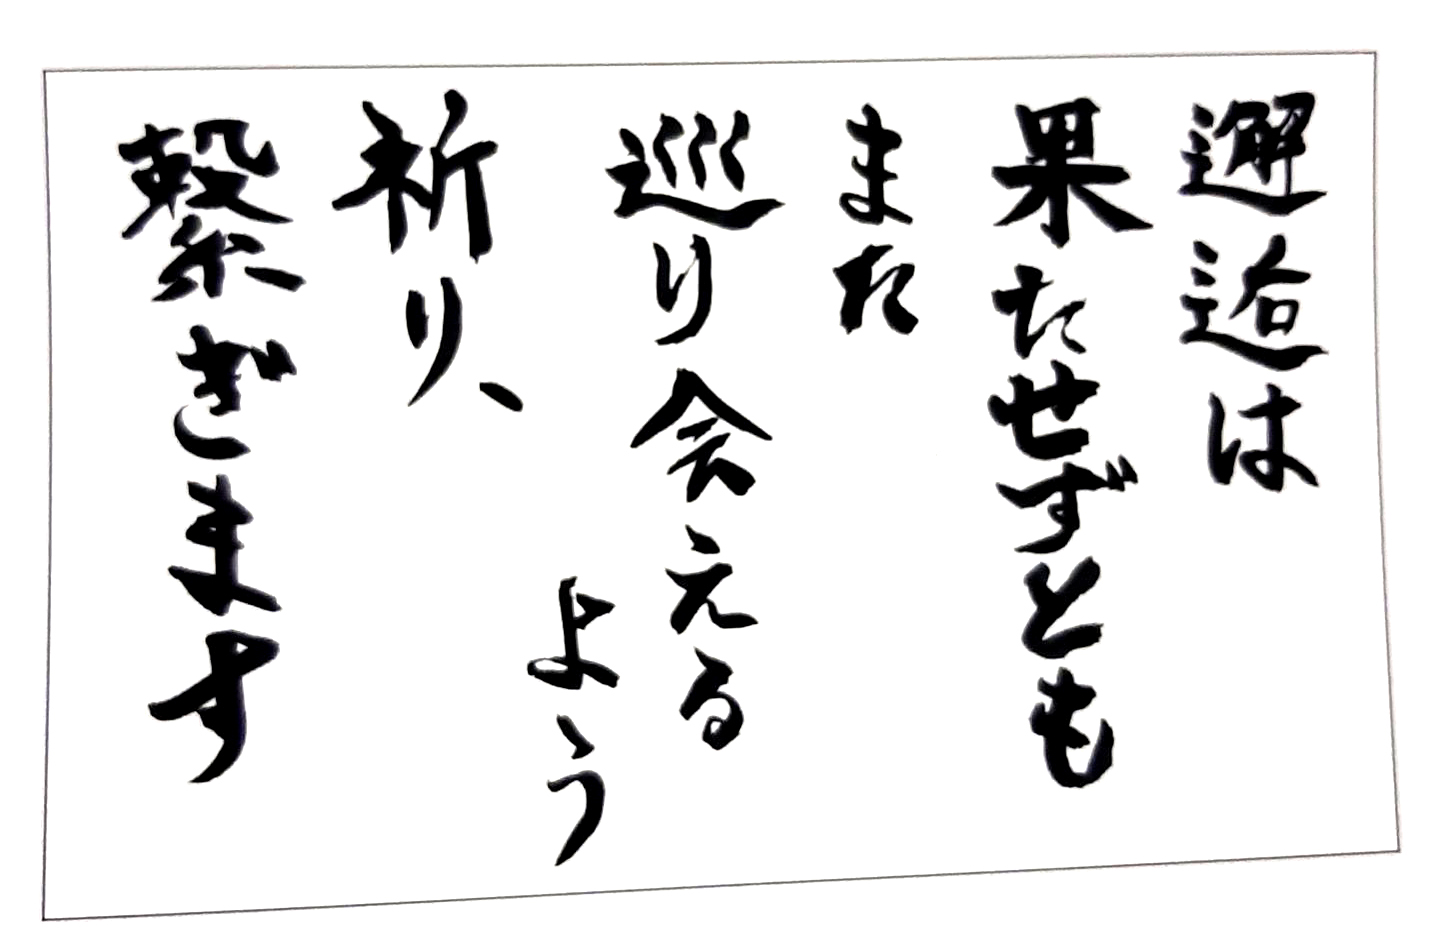 邂逅は
果たせずとも
また
巡り会える
よう
祈り、
繋ぎます